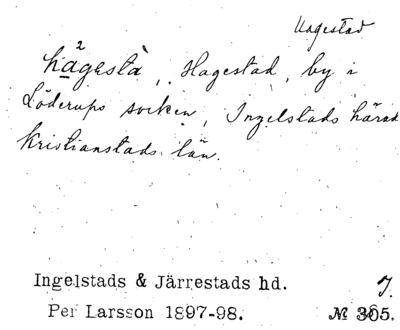 Hagestad
hągestà, Hagestad, by i
Löderups socken, Ingelstads härad
Kristianstads län.
Ingelstads & Järrestads hd.
J.
Per Larsson 1897-98.
№ 305.